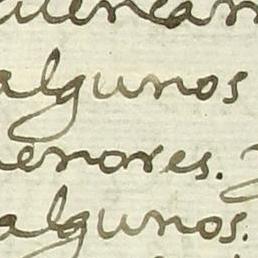 algunos
enores.
algunos.